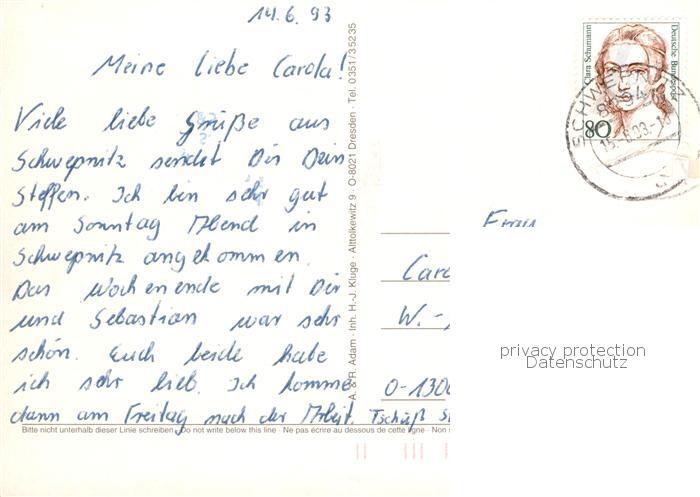 14.6.93
Meine liebe Carola!
Viele liebe Grüße aus
Schwepnitz sendet Dir Dein
Steffen. Ich bin sehr gut
am Sonntag Abend in
Schwepnitz angekommen.
Das Wochenende mit Dir
und Sebastian war sehr
schön. Euch beide habe
ich sehr lieb. Ich komme
dann am Freitag nach der Arbeit. Tschüß
Bitte nicht unterhalb dieser Linie schreiben · Do not write below this line · Ne pas écrire au dessous de cette ligne · Non
A. & R. Adam · Inh. H.-J. Kluge · Alttolkewitz 9 · O-8021 Dresden · Tel. 0351/35235
Clara Schumann
Deutsche Bundespost
80
Frau
W.-
O-1300
privacy protection
Datenschutz